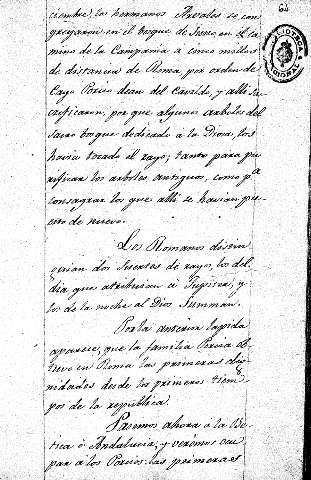 64
ciembre, los hermanos Arvales se con
gregaron en el bosque de Iseno en el ca
mino de la Campania a cinco millas
de distancia de Roma, por orden de
Cayo Porcio dean del Cavildo, y alli sa
crificaron, por que algunos arboles del
sacro bosque dedicado á la Diosa, los
havia tocado el rayo; tanto para pu
rificar los arboles antiguos, como pa
consagrar los que alli se havian pu
esto de nuevo.
Los Romanos distin
guian dos suertes de rayo, los del
dia que atribuian á Jupiter, y
los de la noche al Dios Summan.
Por la anterior lapida
aparece, que la familia Porcia ob
tuvo en Roma las primeras dig
nidades desde los primeros tiem
pos de la republica.
Pasemos ahora á la Be
tica ó Andalucia; y verémos ocu
par á los Porcios las primeras